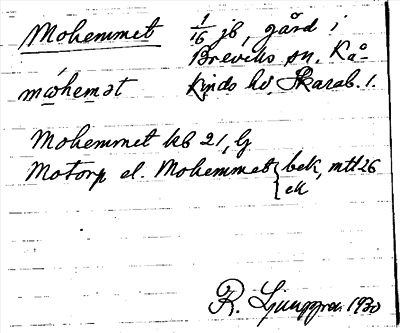 Mohemmet 1/16 jb, gård i
Breviks sn, Kå-
mώhemət kinds hd, Skarab. l.
Mohemmet kb 21, lj
Motorp el. Mohemmet { bek, mtl 26
ek
R. Ljunggren 1930